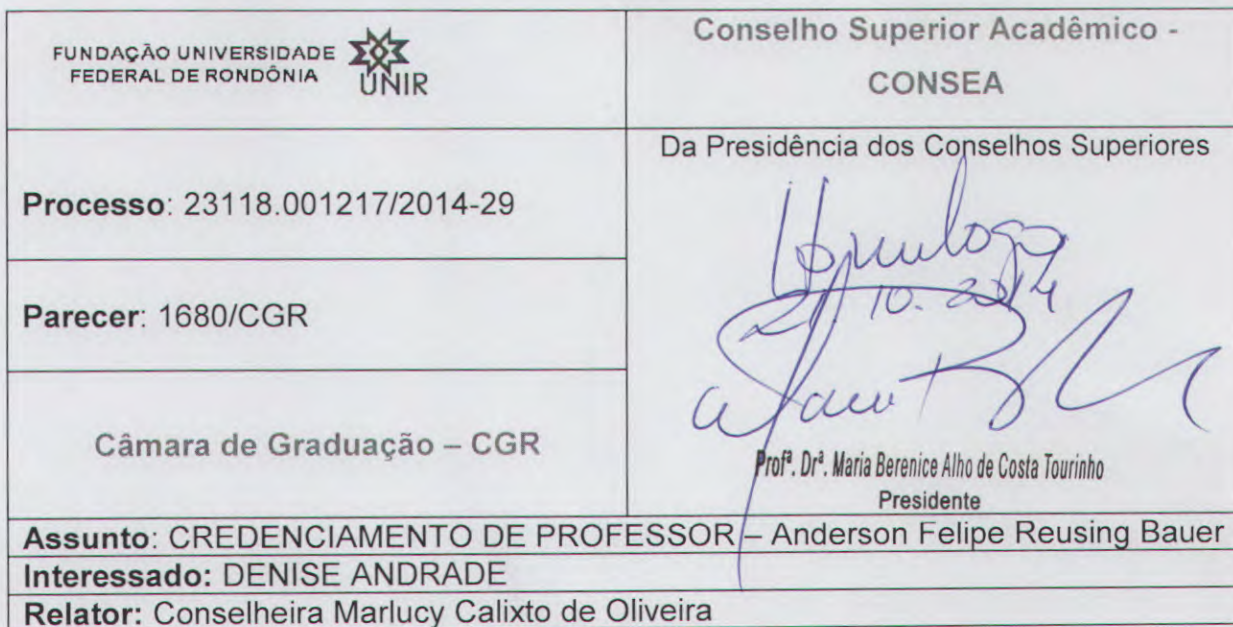 FUNDAÇÃO UNIVERSIDADE
FEDERAL DE RONDÔNIA
UNIR
Conselho Superior Acadêmico -
CONSEA
Processo: 23118.001217/2014-29
Parecer: 1680/CGR
Câmara de Graduação – CGR
Da Presidência dos Conselhos Superiores
Homologo
10. 2014
Profª. Drª. Maria Berenice Alho de Costa Tourinho
Presidente
Assunto: CREDENCIAMENTO DE PROFESSOR – Anderson Felipe Reusing Bauer
Interessado: DENISE ANDRADE
Relator: Conselheira Marlucy Calixto de Oliveira